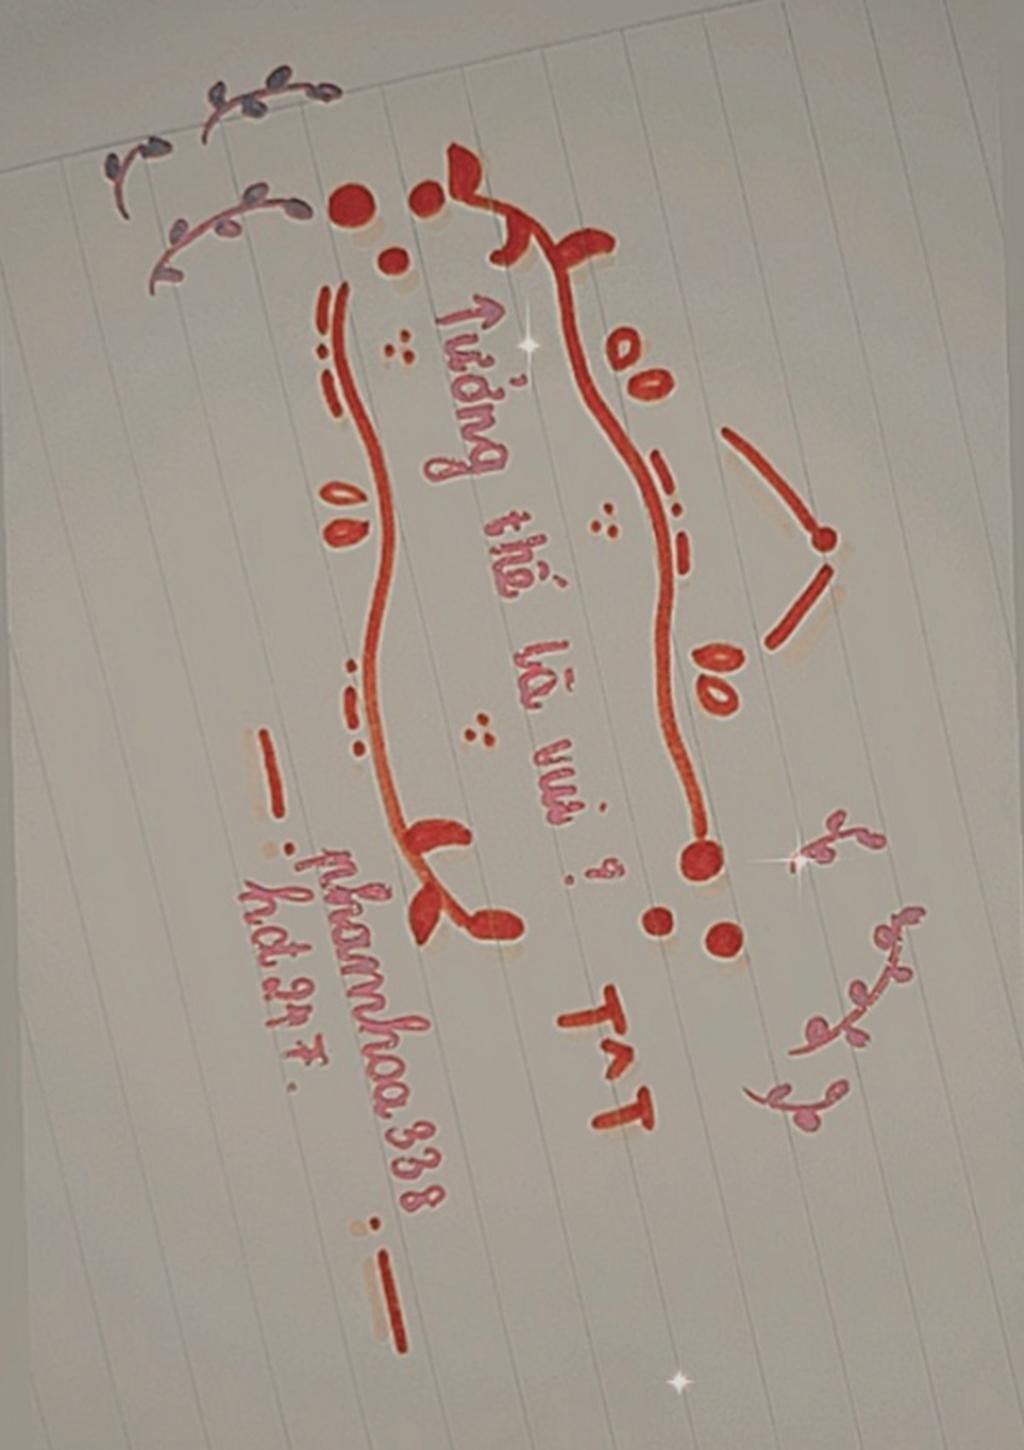 Tưởng thế là vui?
T^T
phamhoa338
hđ247.